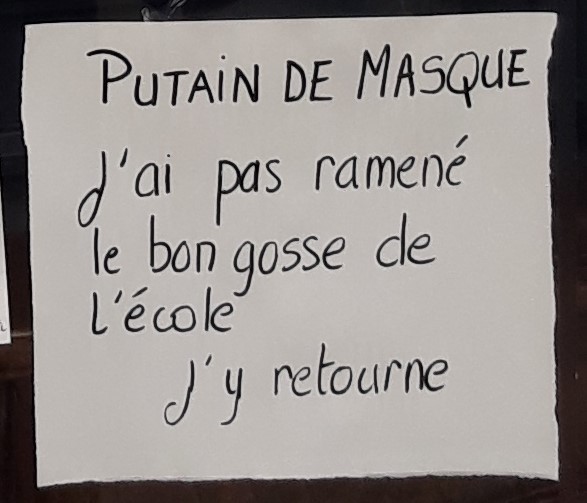 PUTAIN DE MASQUE
J'ai pas ramené
le bon gosse de
L'école
J'y retourne